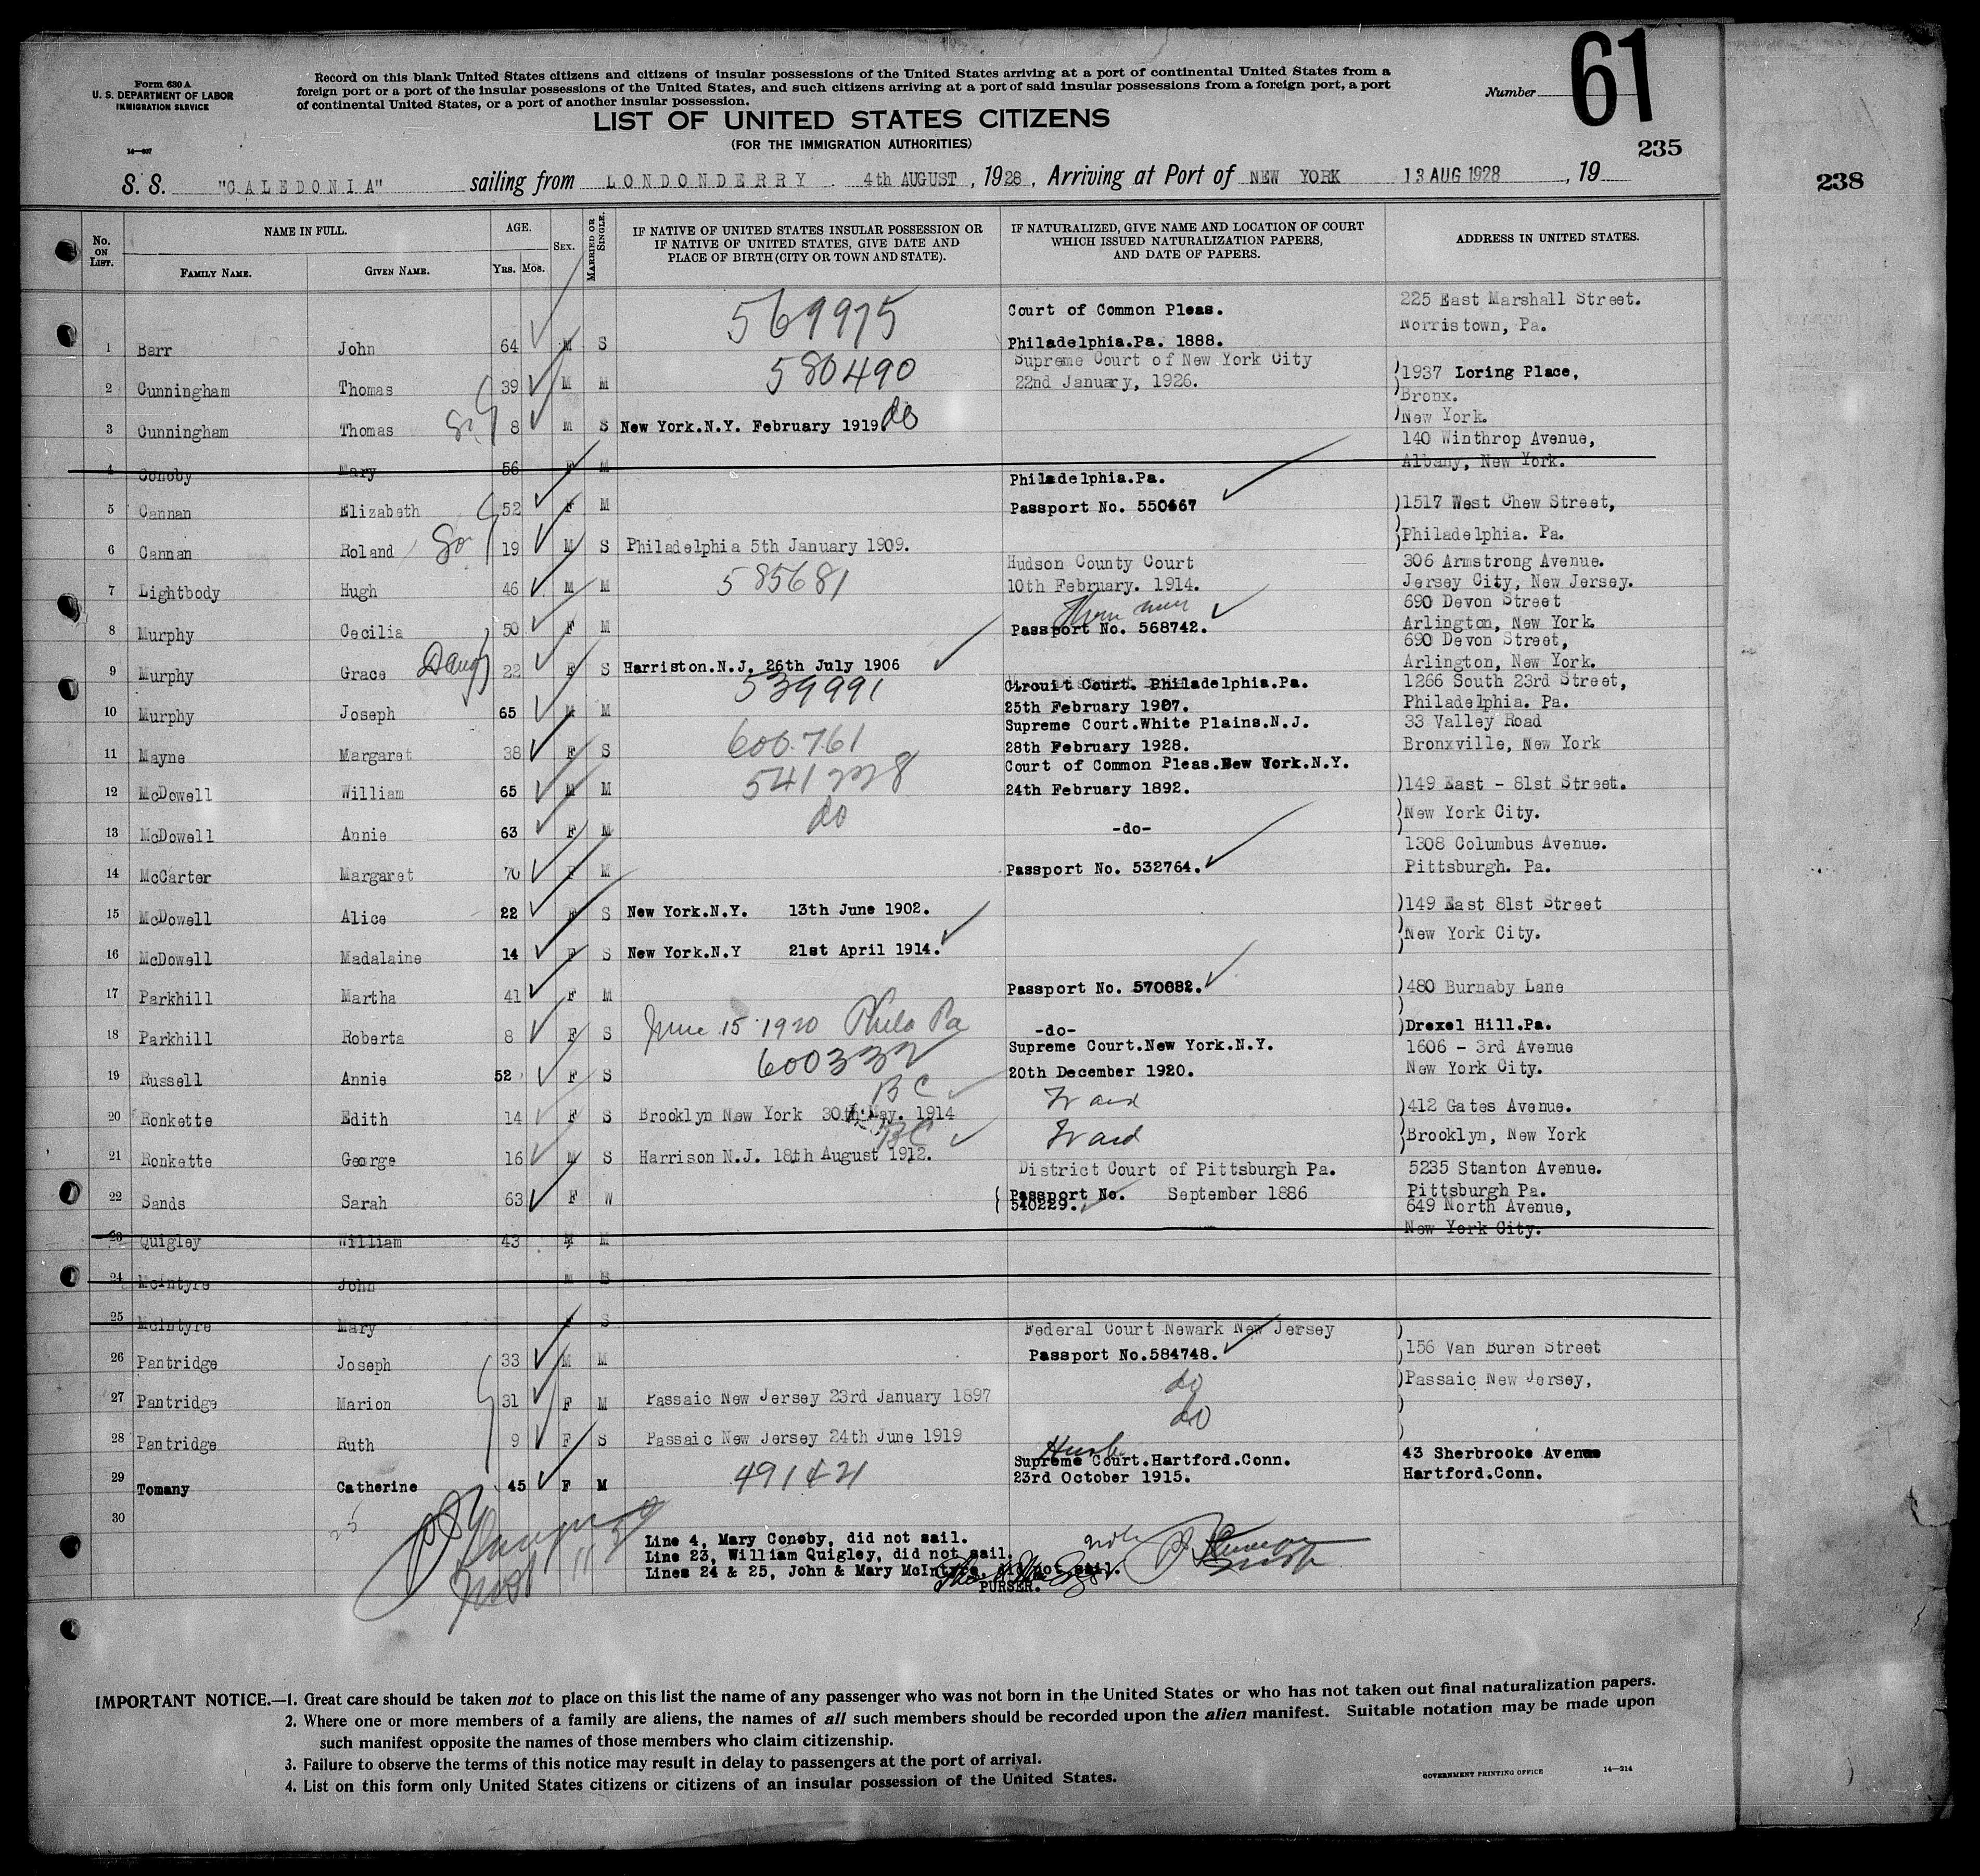 Form 630 A
U. S. DEPARTMENT OF LABOR
IMMIGRATION SERVICE
Record on this blank United States citizens and citizens of insular possessions of the United States arriving at a port of continental United States from a
foreign port or a port of the insular possessions of the United States, and such citizens arriving at a port of said insular possessions from a foreign port, a port
of continental United States, or a port of another insular possession.
Number 61
LIST OF UNITED STATES CITIZENS
(FOR THE IMMIGRATION AUTHORITIES)
235
238
S. S. "CALEDONIA" sailing from LONDONDERRY. 4th AUGUST, 1928, Arriving at Port of NEW YORK 13 AUG 1928, 19
No. ON LIST. NAME IN FULL. AGE. SEX. MARRIED OR SINGLE. IF NATIVE OF UNITED STATES INSULAR POSSESSION OR IF NATIVE OF UNITED STATES, GIVE DATE AND PLACE OF BIRTH (CITY OR TOWN AND STATE). IF NATURALIZED, GIVE NAME AND LOCATION OF COURT WHICH ISSUED NATURALIZATION PAPERS, AND DATE OF PAPERS. ADDRESS IN UNITED STATES.
FAMILY NAME. GIVEN NAME. YRS. MOS.
1 Barr John 64 M S 569975 Court of Common Pleas. Philadelphia.Pa. 1888. 225 East Marshall Street. Norristown, Pa.
2 Cunningham Thomas 39 M M 580490 Supreme Court of New York City 22nd January, 1926. )1937 Loring Place,
3 Cunningham Thomas 8 M S New York.N.Y. February 1919. do )Bronx. )New York.
4 Conoby Mary 56 F M 140 Winthrop Avenue, Albany, New York.
5 Cannan Elizabeth 52 F M Philadelphia.Pa. Passport No. 550667 )1517 West Chew Street,
6 Cannan Roland So 19 M S Philadelphia 5th January 1909. )Philadelphia. Pa.
7 Lightbody Hugh 46 M M 585681 Hudson County Court 10th February. 1914. 306 Armstrong Avenue. Jersey City, New Jersey.
8 Murphy Cecilia 50 F M Passport No. 568742. 690 Devon Street Arlington, New York.
9 Murphy Grace Daug 22 F S Harriston.N.J. 26th July 1906 690 Devon Street, Arlington, New York.
10 Murphy Joseph 65 M M 539991 Circuit Court. Philadelphia.Pa. 25th February 1907. 1266 South 23rd Street, Philadelphia. Pa.
11 Mayne Margaret 38 F S 600.761 Supreme Court.White Plains.N.J. 28th February 1928. 33 Valley Road Bronxville, New York
12 McDowell William 65 M M 541778 Court of Common Pleas.New York.N.Y. 24th February 1892. )149 East - 81st Street.
13 McDowell Annie 63 F M do -do- )New York City.
14 McCarter Margaret 70 F M Passport No. 532764. 1308 Columbus Avenue. Pittsburgh. Pa.
15 McDowell Alice 22 F S New York.N.Y. 13th June 1902. )149 East 81st Street
16 McDowell Madalaine 14 F S New York.N.Y 21st April 1914. )New York City.
17 Parkhill Martha 41 F M Passport No. 570682. )480 Burnaby Lane
18 Parkhill Roberta 8 F S June 15 1920 Phila Pa -do- )Drexel Hill.Pa.
19 Russell Annie 52 F S 600332 Supreme Court.New York.N.Y. 20th December 1920. 1606 - 3rd Avenue New York City.
20 Ronkette Edith 14 F S Brooklyn New York 30th May. 1914 BC )412 Gates Avenue.
21 Ronkette George 16 M S Harrison N.J. 18th August 1912. BC )Brooklyn, New York
22 Sands Sarah 63 F W District Court of Pittsburgh Pa. Passport No. September 1886 540229. 5235 Stanton Avenue. Pittsburgh Pa.
23 Quigley William 43 M M 649 North Avenue, New York City.
24 McIntyre John M S
25 McIntyre Mary F S
26 Pantridge Joseph 33 M M Federal Court Newark New Jersey Passport No.584748. )156 Van Buren Street
27 Pantridge Marion 31 F M Passaic New Jersey 23rd January 1897 do )Passaic New Jersey,
28 Pantridge Ruth 9 F S Passaic New Jersey 24th June 1919 do
29 Tomany Catherine 45 F M Supreme Court.Hartford.Conn. 23rd October 1915. 43 Sherbrooke Avenue Hartford.Conn.
30
Line 4, Mary Conoby, did not sail.
Line 23, William Quigley, did not sail.
Lines 24 & 25, John & Mary McIntyre, did not sail.
PURSER.
IMPORTANT NOTICE.—1. Great care should be taken not to place on this list the name of any passenger who was not born in the United States or who has not taken out final naturalization papers.
2. Where one or more members of a family are aliens, the names of all such members should be recorded upon the alien manifest. Suitable notation may be made upon
such manifest opposite the names of those members who claim citizenship.
3. Failure to observe the terms of this notice may result in delay to passengers at the port of arrival.
4. List on this form only United States citizens or citizens of an insular possession of the United States.
GOVERNMENT PRINTING OFFICE 14—214